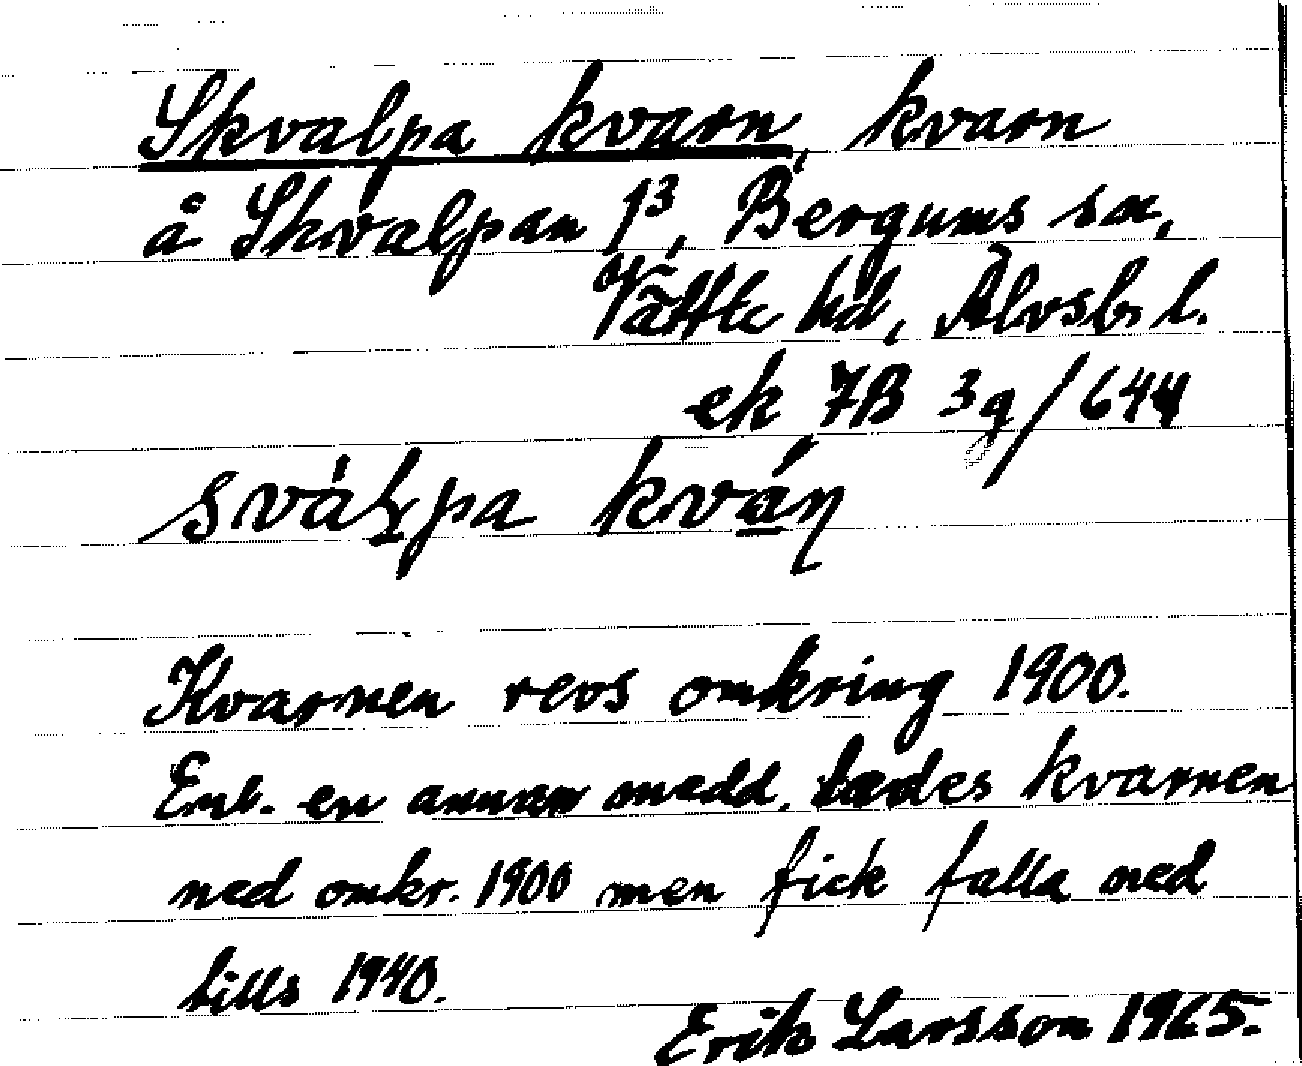 Skvalpa kvarn, kvarn
å Skvalpan 1³, Bergums sn,
Vättle hd, Älvsb. l.
ek 7B 3g/644
kván
Kvarnen revs omkring 1900.
Enl. en annan medd. lades kvarnen
ned omkr. 1900 men fick falla ned
tills 1940.
Erik Larsson 1965.